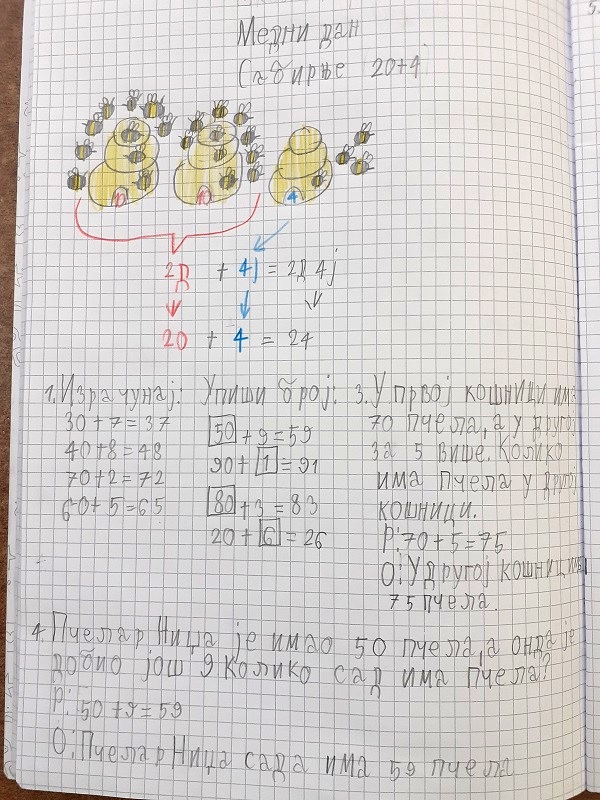 Медни дан
Сабирње 20+4
10 10 4
2Д + 4ј = 2Д 4ј
20 + 4 = 24
1. Израчунај:
30+7=37
40+8=48
70+2=72
60+5=65
Упиши број:
50+9=59
90+1=91
80+3=83
20+6=26
3. У првој кошници има
70 пчела, а у другој
за 5 више. Колико
има пчела у другој
кошници.
Р: 70+5=75
О: У другој кошници има
75 пчела.
4. Пчелар Ница је имао 50 пчела, а онда је
добио још 9 Колико сад има пчела?
Р: 50+9=59
О: Пчелар Ница сада има 59 пчела
5.